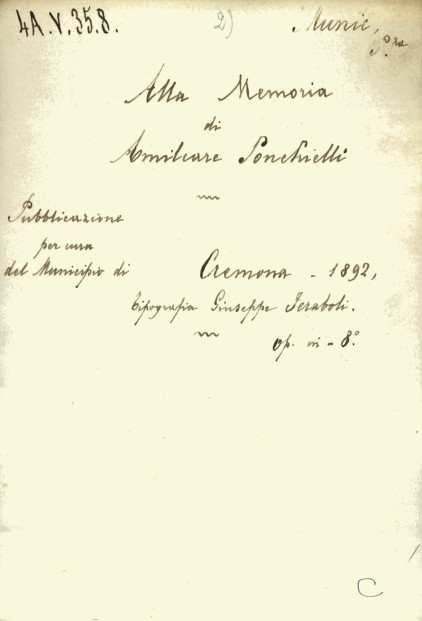 4A.V.35.8.
2)
Munic,
5.º ra
Alla Memoria
di
Amilcare Ponchielli
Pubblicazione
per cura
del Municipio di
Cremona - 1892,
Tipografia Giuseppe Feraboli.
op. in - 8.º
C